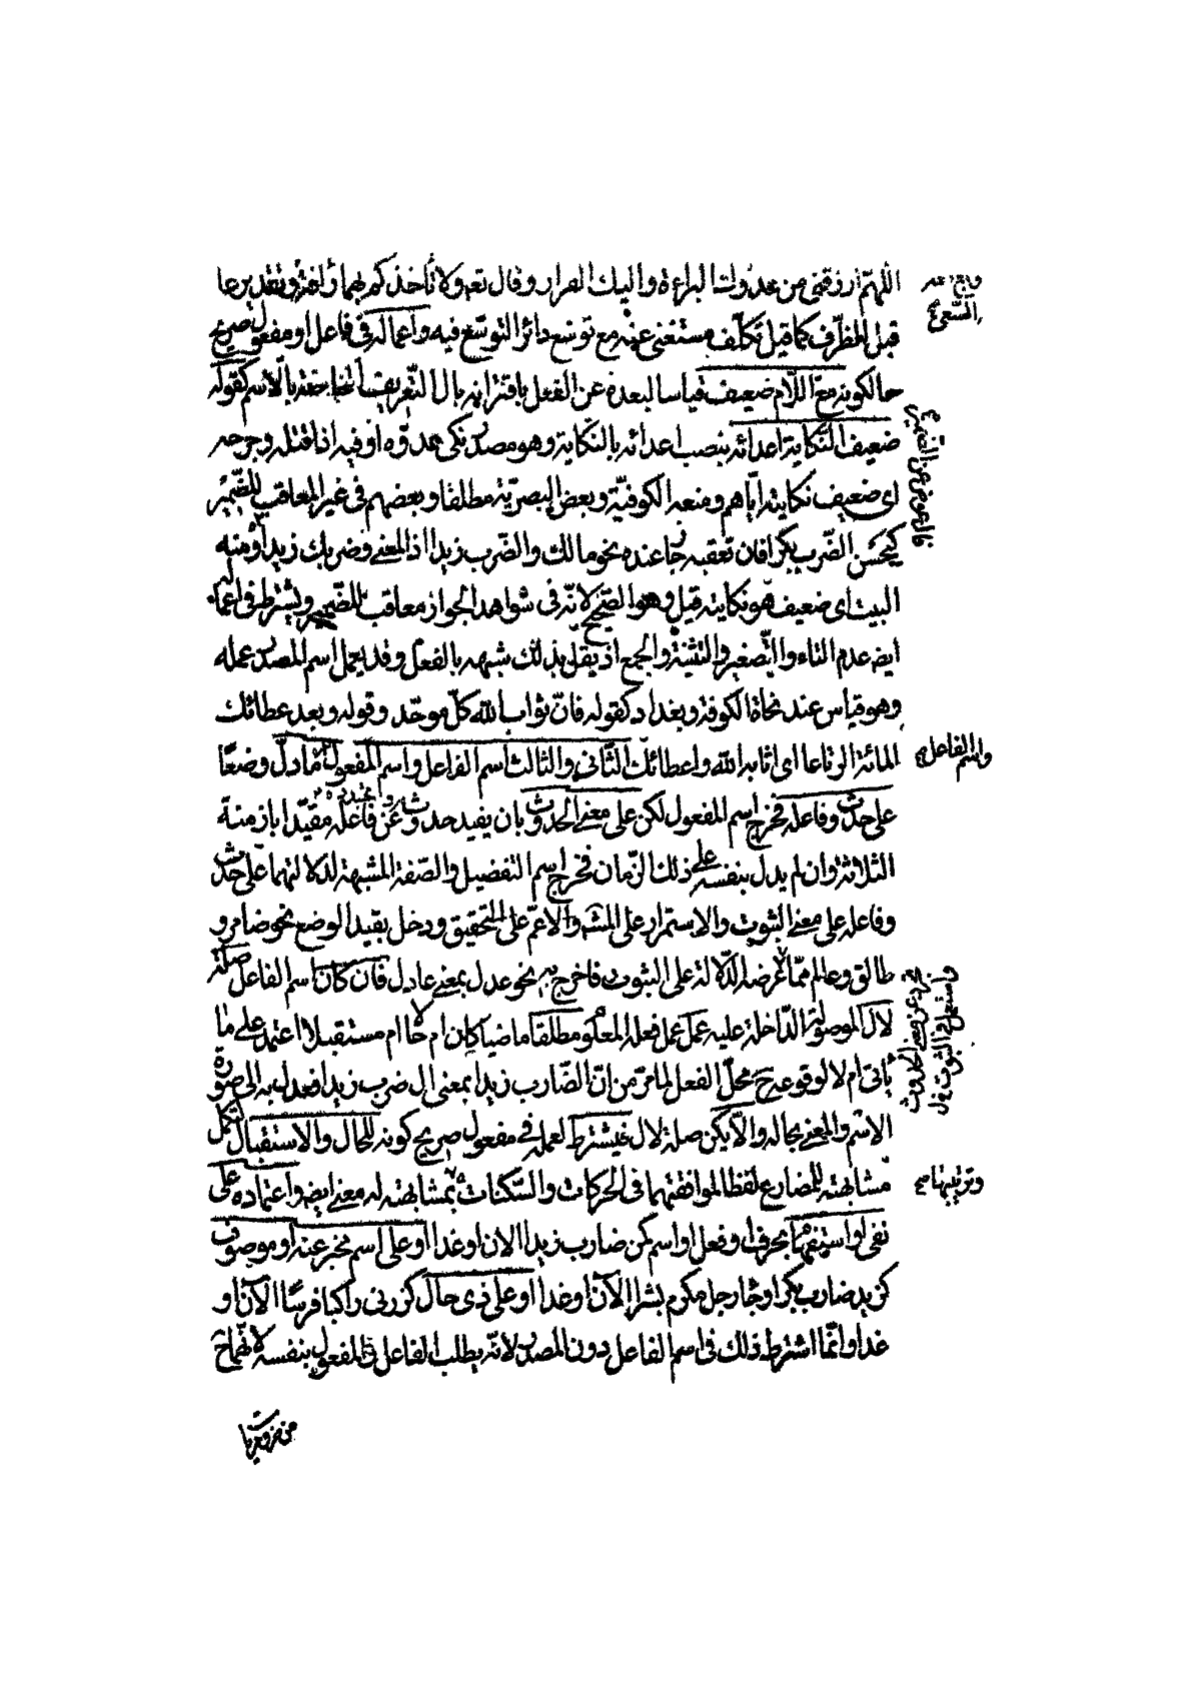 اللهم ارزقنى من عدوك البراءة واليك الفرار وقال تعه ولا تأخذكم بهما رافة وتقدير عا
قبل للظرف كما قيل تكلف مستغنى عنه مع توسع دائر التوسع فيه واعماله فى فاعل او مفعول صريح
حالكونه مع اللام ضعيف قياسا لبعده عن الفعل باقترانه بال التعريف بالاسم كقوله
ضعيف النكاية اعدائه بنصب اعدائه بالنكاية وهو مصدر نكى عدوه او فيه اذا قتله وجرحه
اى ضعيف نكايته اياهم ومنعه الكوفية وبعض البصرية مطلقا وبعضهم فى غير المعاقب للضمير
كيحسن الضرب بكرا فان تعقبه جا عنده نحو مالك والضرب زيدا اذ المعنى وضربك زيدا ومنه
البيت اى ضعيف هو نكايته قيل وهو الصحيح لانه فى شواهد الجواز معاقب للضمير ويشترط فى اعماله
ايضه عدم التاء والتصغير والتثنية والجمع اذ يقل بذلك شبهه بالفعل وقد يعمل اسم المصدر عمله
وهو قياس عند نحاة الكوفة وبغداد كقوله فان ثواب الله كل موحد وقوله وبعد عطائك
المائة الرتاعا اى اثابه الله واعطائك الثانى والثالث اسم الفاعل واسم المفعول ما دل وضعا
على حدث وفاعله فخرج اسم المفعول لكن على معنى الحدوث بان يفيد حدوث عن فاعله مقيدا بازمنة
الثلاثة وان لم يدل بنفسه على ذلك الزمان فخرج اسم التفضيل والصفة المشبهة لدلالتهما على حدث
وفاعله على معنى الثبوت والاستمرار على المشه والاعم على التحقيق ودخل بقيد الوضع نحو ضامر و
طالق وعالم مما عرضه الدلالة على الثبوت فاخرج به نحو عدل بمعنى عادل فان كان اسم الفاعل صلة
لال الموصولة الداخلة عليه عمل عمل فعله المعلوم مطلقا ماضيا كان ام حالا ام مستقبلا اعتمد على ما
يأتى ام لا لوقوعه ح محل الفعل لما مر من ان الضارب زيدا بمعنى ال ضرب زيدا فعدل به الى صورة
الاسم والمعنى بحاله والا يكن صلة لال فيشترط لعمله فى مفعول صريح كونه للحال والاستقبال لتكمل
مشابهته للمضارع لفظا لموافقتهما فى الحركات والسكنات بمشابهته له معنى ايضه واعتماده على
نفى او استفهام بحرف او فعل او اسم كمن ضارب زيدا الان او غدا او على اسم مخبر عنه او موصوف
كزيد ضارب بكرا وجا رجل مكرم بشرا الآن او غدا او على ذى حال كزرنى راكبا فرسا الآن او
غدا وانما اشترط ذلك فى اسم الفاعل دون المصدر لانه يطلب الفاعل والمفعول بنفسه لانهما
السعى
فالعوض عن الضمير
واسم الفاعل
وترتيبها